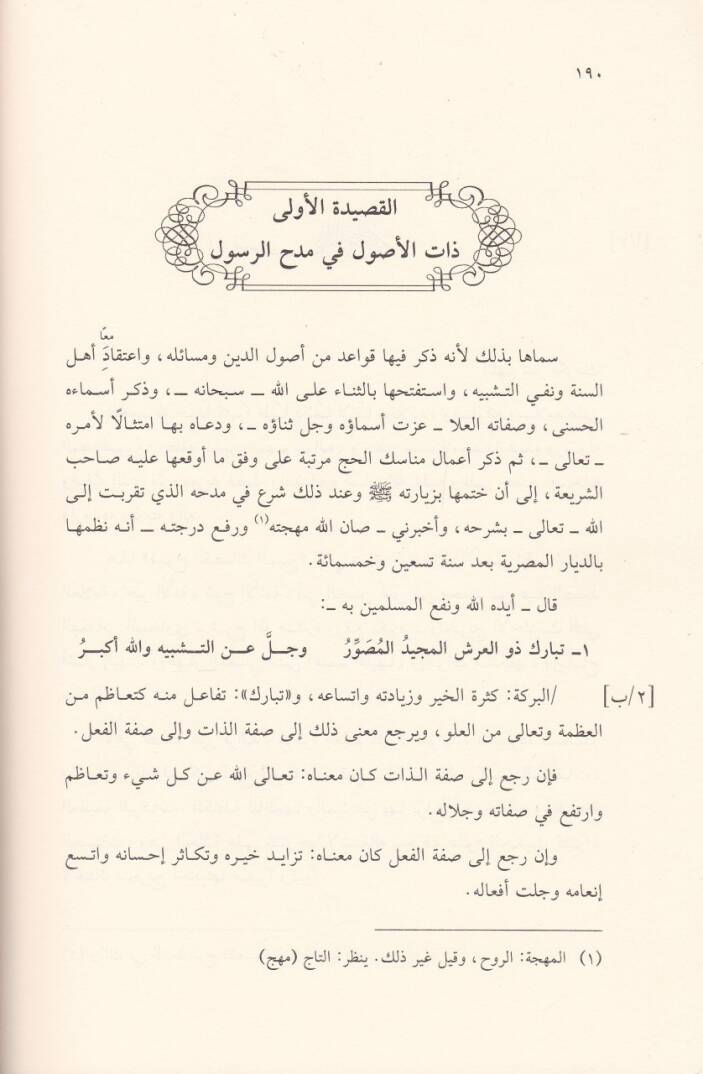 ١٩٠
القصيدة الأولى
ذات الأصول في مدح الرسول
سماها بذلك لأنه ذكر فيها قواعد من أصول الدين ومسائله، واعتقادَِ معًا أهل
السنة ونفي التشبيه، واستفتحها بالثناء على الله ــ سبحانه ــ، وذكر أسماءه
الحسنى، وصفاته العلا ــ عزت أسماؤه وجل ثناؤه ــ، ودعاه بها امتثالًا لأمره
ــ تعالى ــ، ثم ذكر أعمال مناسك الحج مرتبة على وفق ما أوقعها عليه صاحب
الشريعة، إلى أن ختمها بزيارته ﷺ وعند ذلك شرع في مدحه الذي تقربت إلى
الله ــ تعالى ــ بشرحه، وأخبرني ــ صان الله مهجته(١) ورفع درجته ــ أنه نظمها
بالديار المصرية بعد سنة تسعين وخمسمائة.
قال ــ أيده الله ونفع المسلمين به ــ:
١ــ تبارك ذو العرش المجيدُ المُصَوِّرُ وجلَّ عن التشبيه والله أكبرُ
[٢/ب] /البركة: كثرة الخير وزيادته واتساعه، و«تبارك»: تفاعل منه كتعاظم من
العظمة وتعالى من العلو، ويرجع معنى ذلك إلى صفة الذات وإلى صفة الفعل.
فإن رجع إلى صفة الذات كان معناه: تعالى الله عن كل شيء وتعاظم
وارتفع في صفاته وجلاله.
وإن رجع إلى صفة الفعل كان معناه: تزايد خيره وتكاثر إحسانه واتسع
إنعامه وجلت أفعاله.
(١) المهجة: الروح، وقيل غير ذلك. ينظر: التاج (مهج)